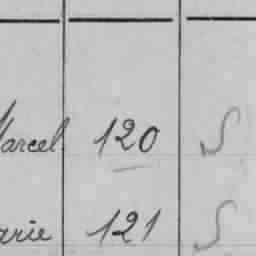 Marcel 120 S
arie 121 S